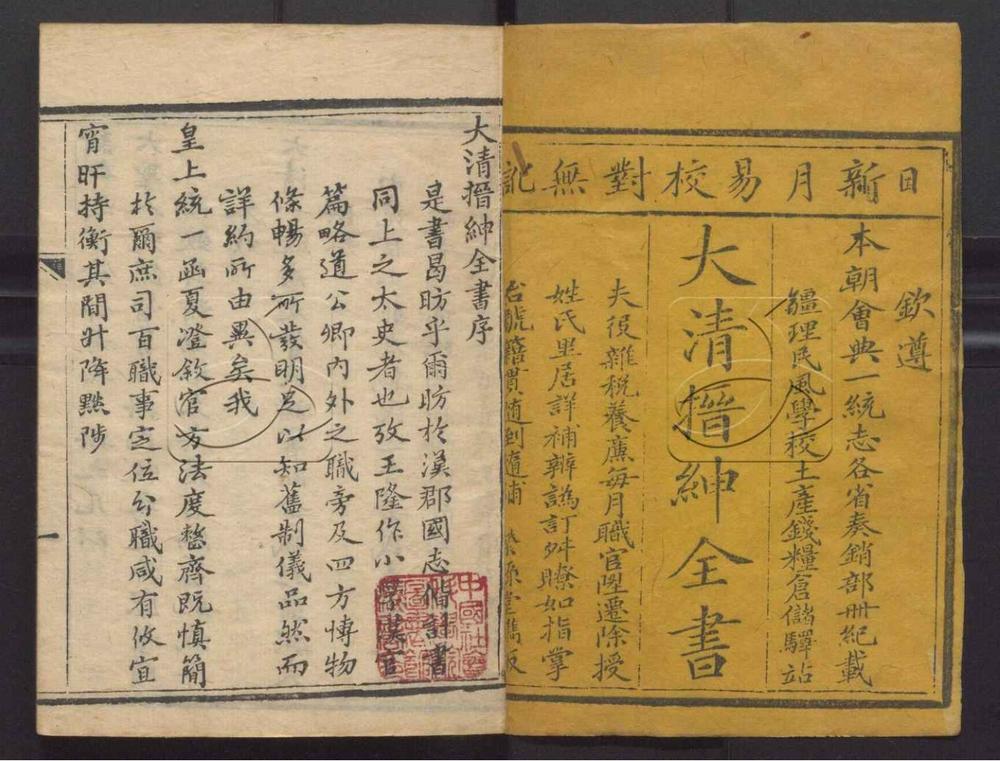 日新月易校對無訛
欽遵
本朝會典一統志各省奏銷部冊紀載
疆理民風學校土產錢糧倉儲驛站
大清搢紳全書
夫役雜稅養廉每月職官陞遷除授
姓氏里居詳補辨譌訂舛瞭如指掌
台號籍貫随到隨補 榮
大清搢紳全書序
是書曷昉乎爾昉於漢郡國志偕計書
同上之太史者也攷王隆作小學漢官
篇略道公卿內外之職旁及四方博物
條暢多所發明足以知舊制儀品然而
詳約所由異矣我
皇上統一函夏澄敘官方法度整齊既慎簡
於爾庶司百職事定位分職咸有攸宜
宵旰持衡其間升降黜陟
一